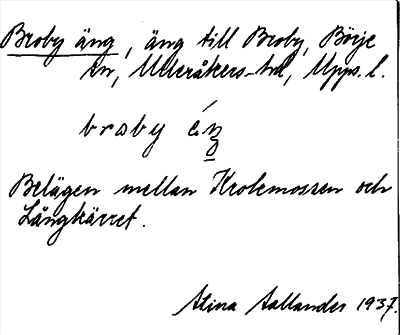 Broby äng, äng till Broby, Börje
sn, Ulleråkers hd, Upps. l.
broby ę́ŋ
Belägen mellan Krokmossen och
Långkärret.
Stina Aallander 1937.